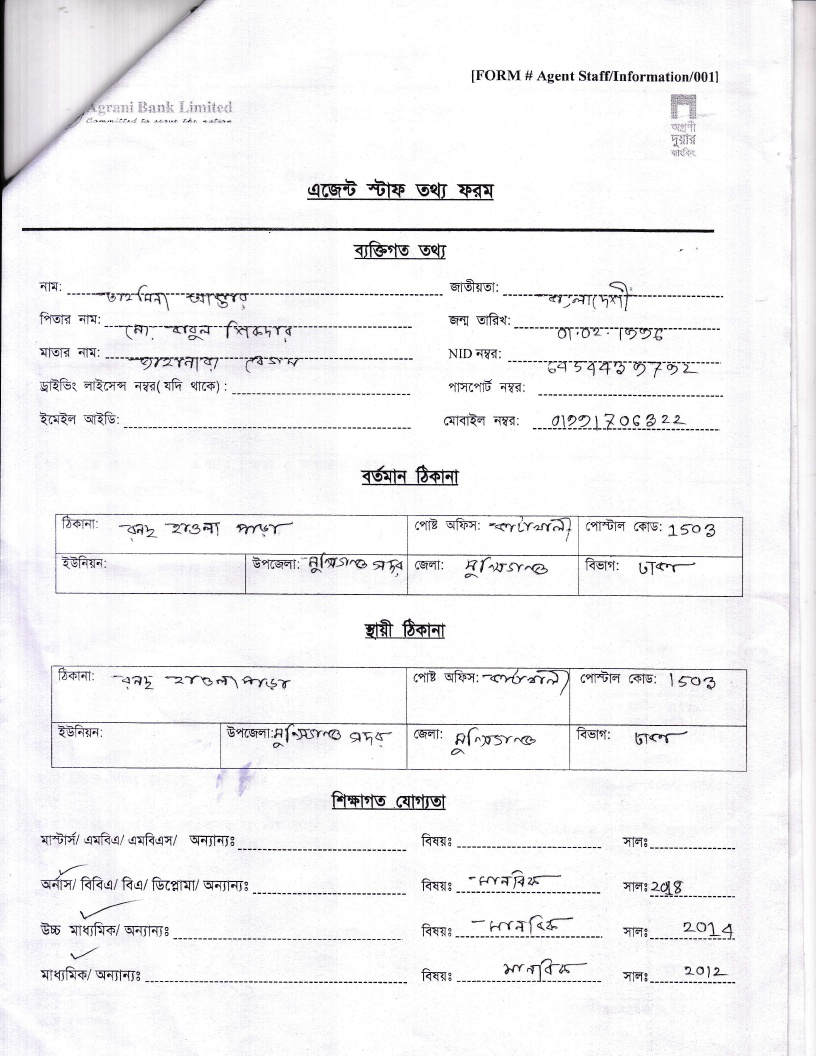 [FORM # Agent Staff/Information/001]
Agrani Bank Limited
Committed to serve the nation
অগ্রণী
দুয়ার
ব্যাংকিং
এজেন্ট স্টাফ তথ্য ফরম
ব্যক্তিগত তথ্য
নাম: তাহমিনা আক্তার জাতীয়তা: বাংলাদেশী
পিতার নাম: মো. বাবুল শিকদার জন্ম তারিখ: 01.02.1996
মাতার নাম: বেগম NID নম্বর:
ড্রাইভিং লাইসেন্স নম্বর(যদি থাকে) : পাসপোর্ট নম্বর:
ইমেইল আইডি: মোবাইল নম্বর:
বর্তমান ঠিকানা
ঠিকানা: রনছ হাওলা পাড়া পোষ্ট অফিস: পোস্টাল কোড: 1503
ইউনিয়ন: উপজেলা: মুন্সিগঞ্জ সদর জেলা: মুন্সিগঞ্জ বিভাগ: ঢাকা
স্থায়ী ঠিকানা
ঠিকানা: রনছ হাওলা পাড়া পোষ্ট অফিস: পোস্টাল কোড: 1503
ইউনিয়ন: উপজেলা: মুন্সিগঞ্জ সদর জেলা: মুন্সিগঞ্জ বিভাগ: ঢাকা
শিক্ষাগত যোগ্যতা
মাস্টার্স/ এমবিএ/ এমবিএস/ অন্যান্যঃ বিষয়ঃ সালঃ
অর্নাস/ বিবিএ/ বিএ/ ডিপ্লোমা/ অন্যান্যঃ বিষয়ঃ মানবিক সালঃ 2018
উচ্চ মাধ্যমিক/ অন্যান্যঃ বিষয়ঃ মানবিক সালঃ 2014
মাধ্যমিক/ অন্যান্যঃ বিষয়ঃ মানবিক সালঃ 2012